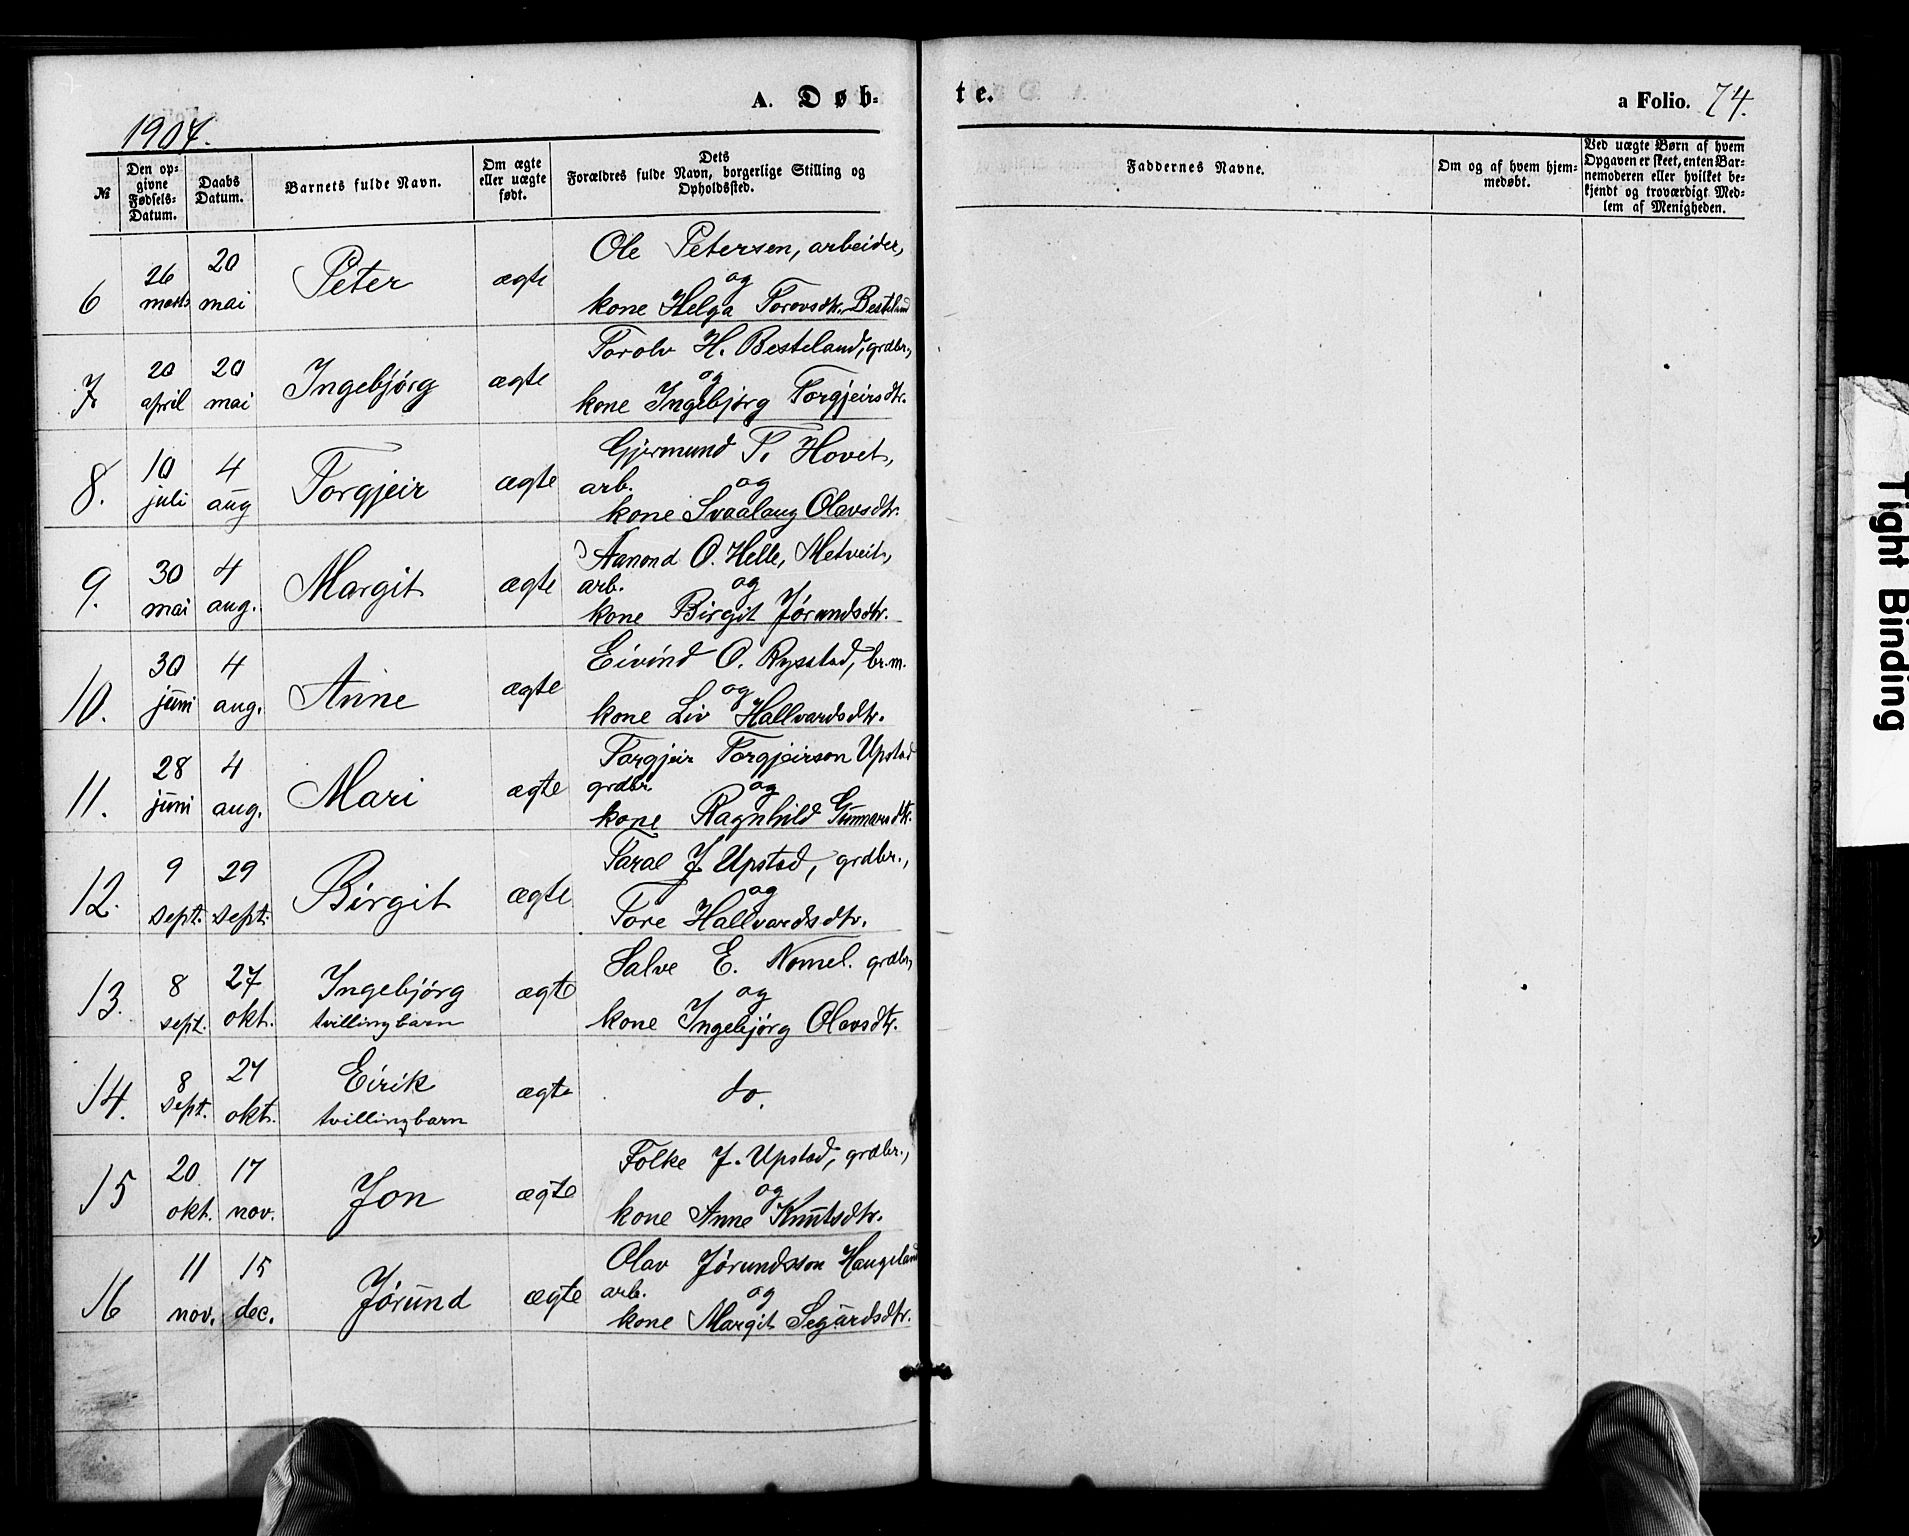 A. Døb-
te.
a Folio. 74.
1907.
№
Den op-
givne
Fødsels-
Datum.
Daabs
Datum.
Barnets fulde Navn.
Om ægte
eller uægte
født.
Dets
Forældres fulde Navn, borgerlige Stilling og
Opholdssted.
Faddernes Navne.
Om og af hvem hjem-
medøbt.
Ved uægte Børn af hvem
Opgaven er skeet, enten Bar-
nemoderen eller hvilket be-
kjendt og troværdigt Med-
lem af Menigheden.
6
26
marts
20
mai
Peter
ægte
Ole Petersen, arbeider,
og
kone Helga Torovsdtr. Besteland
7
20
april
20
mai
Ingebjørg
ægte
Torolv H. Besteland, grdbr.,
og
kone Ingebjørg Torgjeirsdtr.
8.
10
juli
4
aug
Torgjeir
ægte
Gjermund T. Hovet,
arb. og
kone Svaalaug Olavsdtr.
9.
30
mai
4
aug.
Margit
ægte
Aanond O. Helle, Metveit,
arb. og
kone Birgit Jørundsdtr.
10.
30
juni
4
aug.
Anne
ægte
Eivind O. Rysstad, br.m.
og
kone Liv Hallvardsdtr.
11.
28
juni
4
aug.
Mari
ægte
Torgjeir Torgjeirson Upstad
grdbr. og
kone Ragnhild Gunnarsdtr.
12.
9
sept.
29
sept.
Birgit
ægte
Taral J Upstad, grdbr.,
og
Tore Hallvardsdtr.
13.
8
sept.
27
okt.
Ingebjørg
tvillingbarn
ægte
Salve E. Nomel. grdbr,
og
kone Ingebjørg Olavsdtr.
14.
8
sept.
27
okt.
Eirik
tvillingbarn
ægte
do.
15
20
okt.
17
nov.
Jon
ægte
Folke J. Upstad, grdbr.,
og
kone Anne Knutsdtr.
16
11
nov.
15
dec.
Jørund
ægte
Olav Jørundsson Haugeland
arb. og
kone Margit Segurdsdtr.
Tight Binding